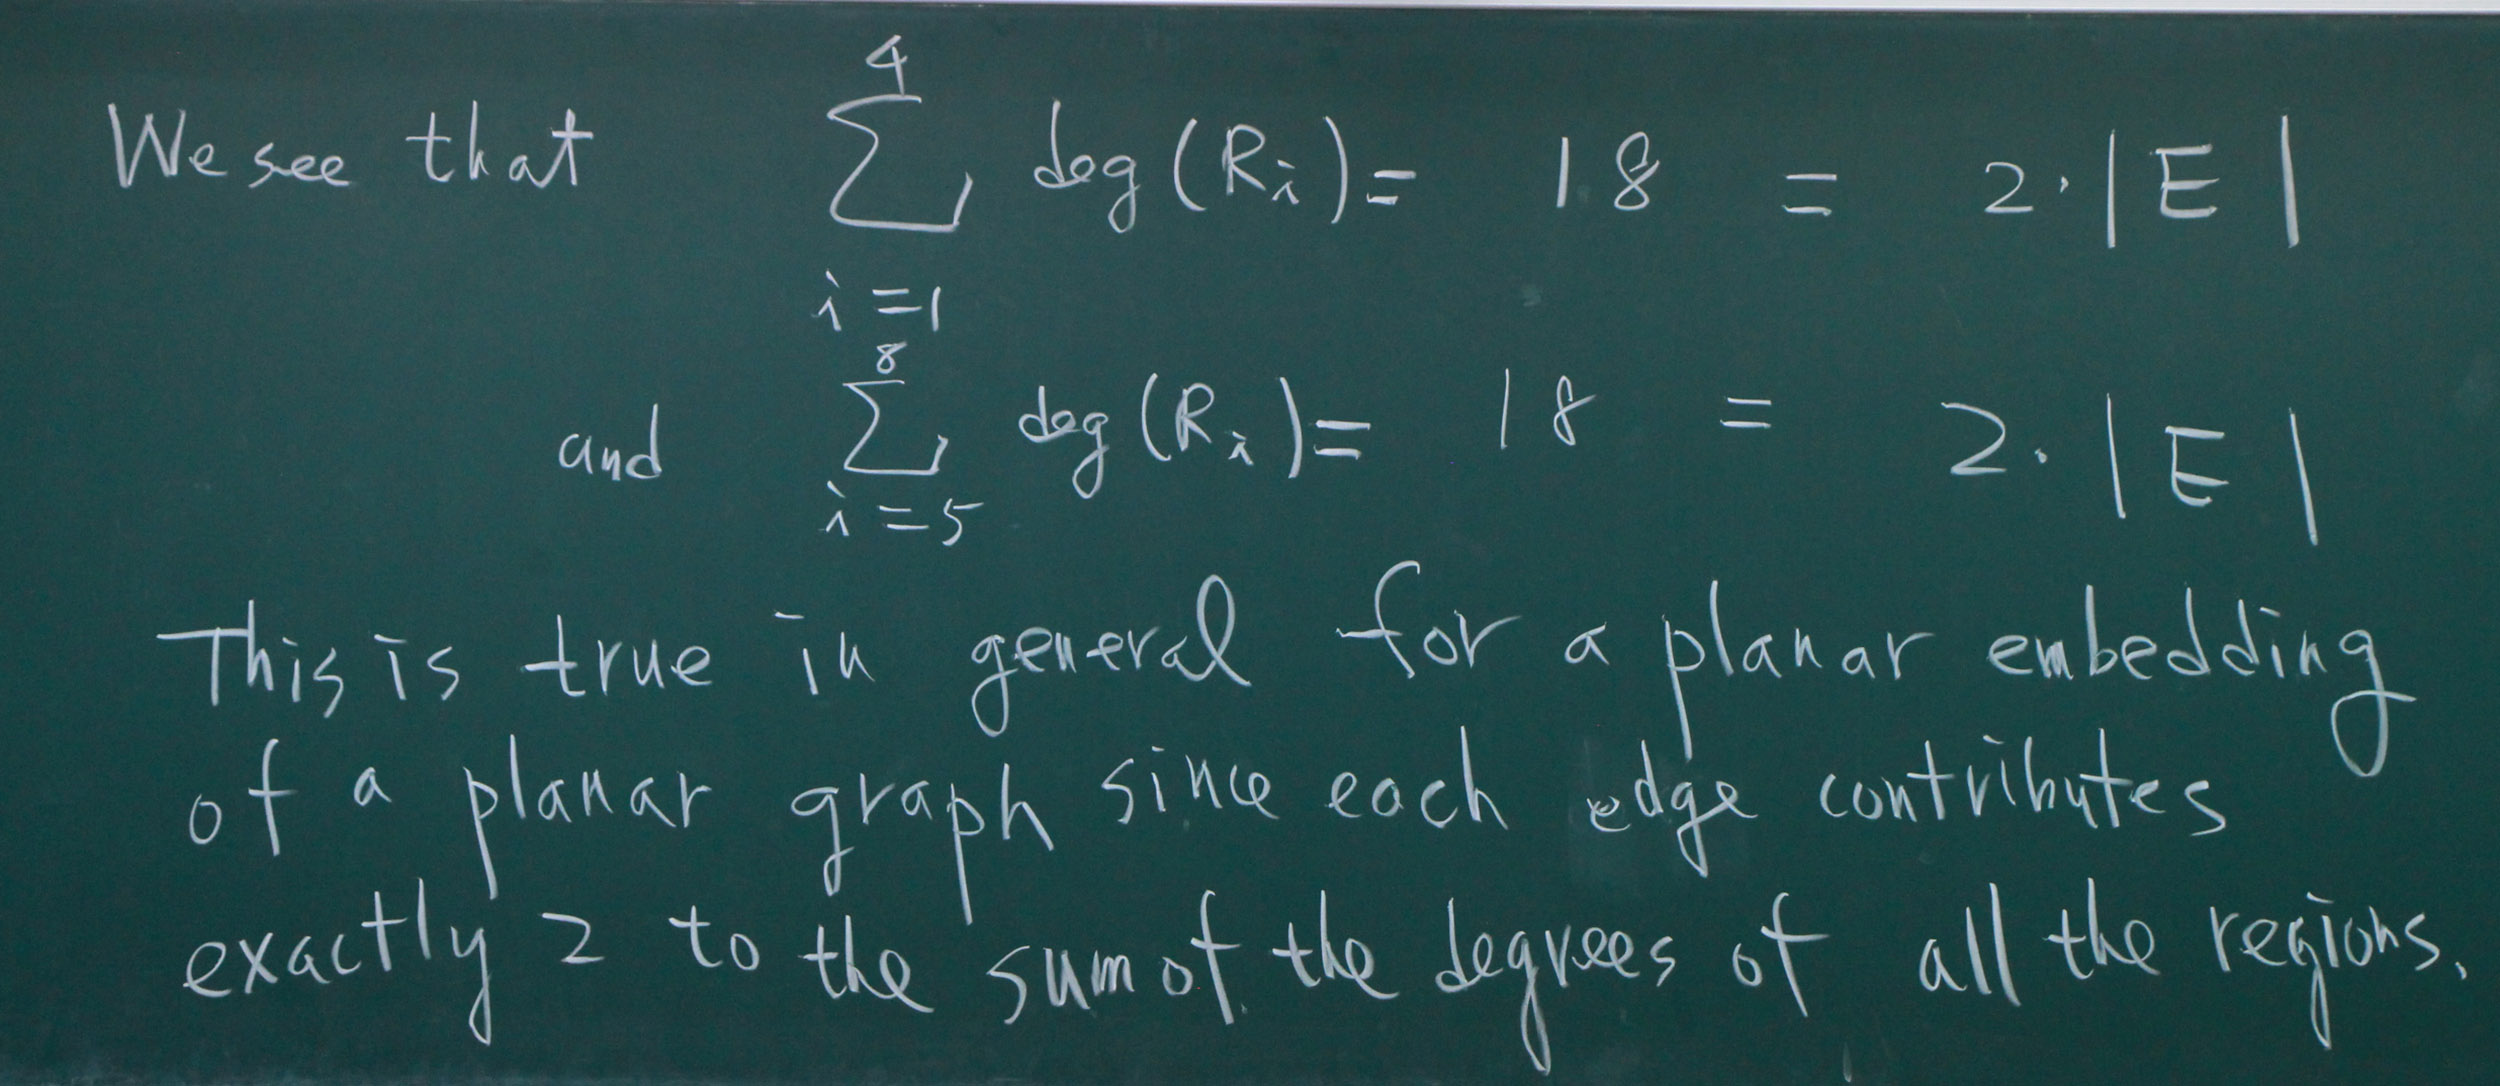 We see that $\sum_{i=1}^{4} \deg(R_i) = 18 = 2 \cdot |E|$
and $\sum_{i=5}^{8} \deg(R_i) = 18 = 2 \cdot |E|$
This is true in general for a planar embedding
of a planar graph since each edge contributes
exactly 2 to the sum of the degrees of all the regions.